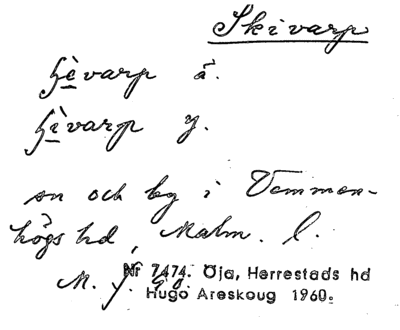 Skivarp
ʃèvarp ä.
ʃìvarp y.
sn och by i Vemmen-
högs hd, Malm. l.
M. J. 90.
Nr 7474. Öja, Herrestads hd
Hugo Areskoug 1960.